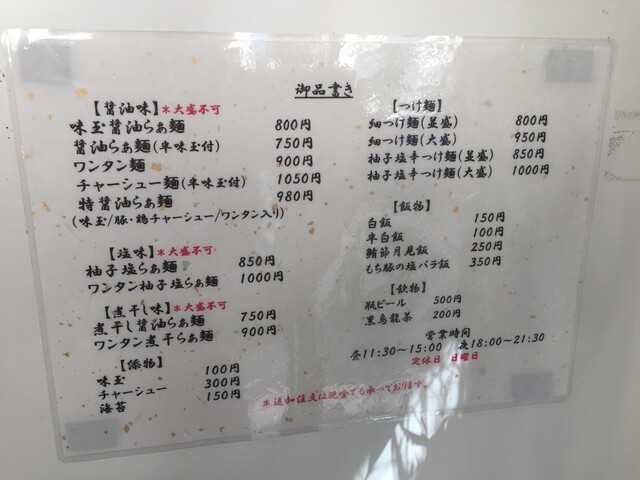 御品書き
【醤油味】＊大盛不可
味玉醤油らぁ麺 800円
醤油らぁ麺(半味玉付) 750円
ワンタン麺 900円
チャーシュー麺(半味玉付) 1050円
特醤油らぁ麺 980円
(味玉/豚・鶏チャーシュー/ワンタン入り)
【塩味】＊大盛不可
柚子塩らぁ麺 850円
ワンタン柚子塩らぁ麺 1000円
【煮干し味】＊大盛不可
煮干し醤油らぁ麺 750円
ワンタン煮干らぁ麺 900円
【添物】
味玉 100円
チャーシュー 300円
海苔 150円
【つけ麺】
細つけ麺(並盛) 800円
細つけ麺(大盛) 950円
柚子塩辛つけ麺(並盛) 850円
柚子塩辛つけ麺(大盛) 1000円
【飯物】
白飯 150円
半白飯 100円
鮪節月見飯 250円
もち豚の塩バラ飯 350円
【飲物】
瓶ビール 500円
黒烏龍茶 200円
営業時間
昼11:30~15:00 夜18:00~21:30
定休日 日曜日
＊追加注文は現金でも承っております。